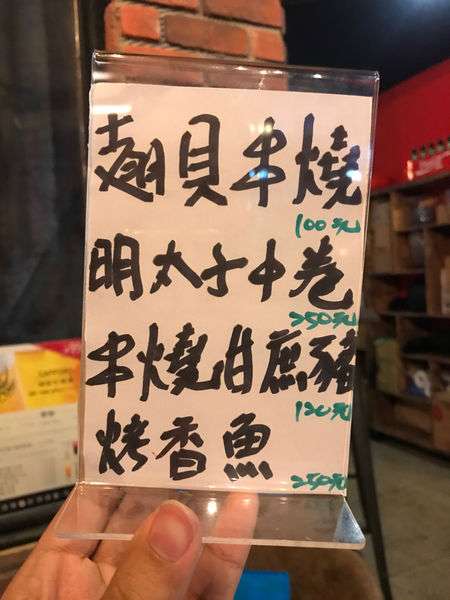 翅貝串燒
100元
明太子中卷
250元
串燒甘蔗豬
120元
烤香魚
250元